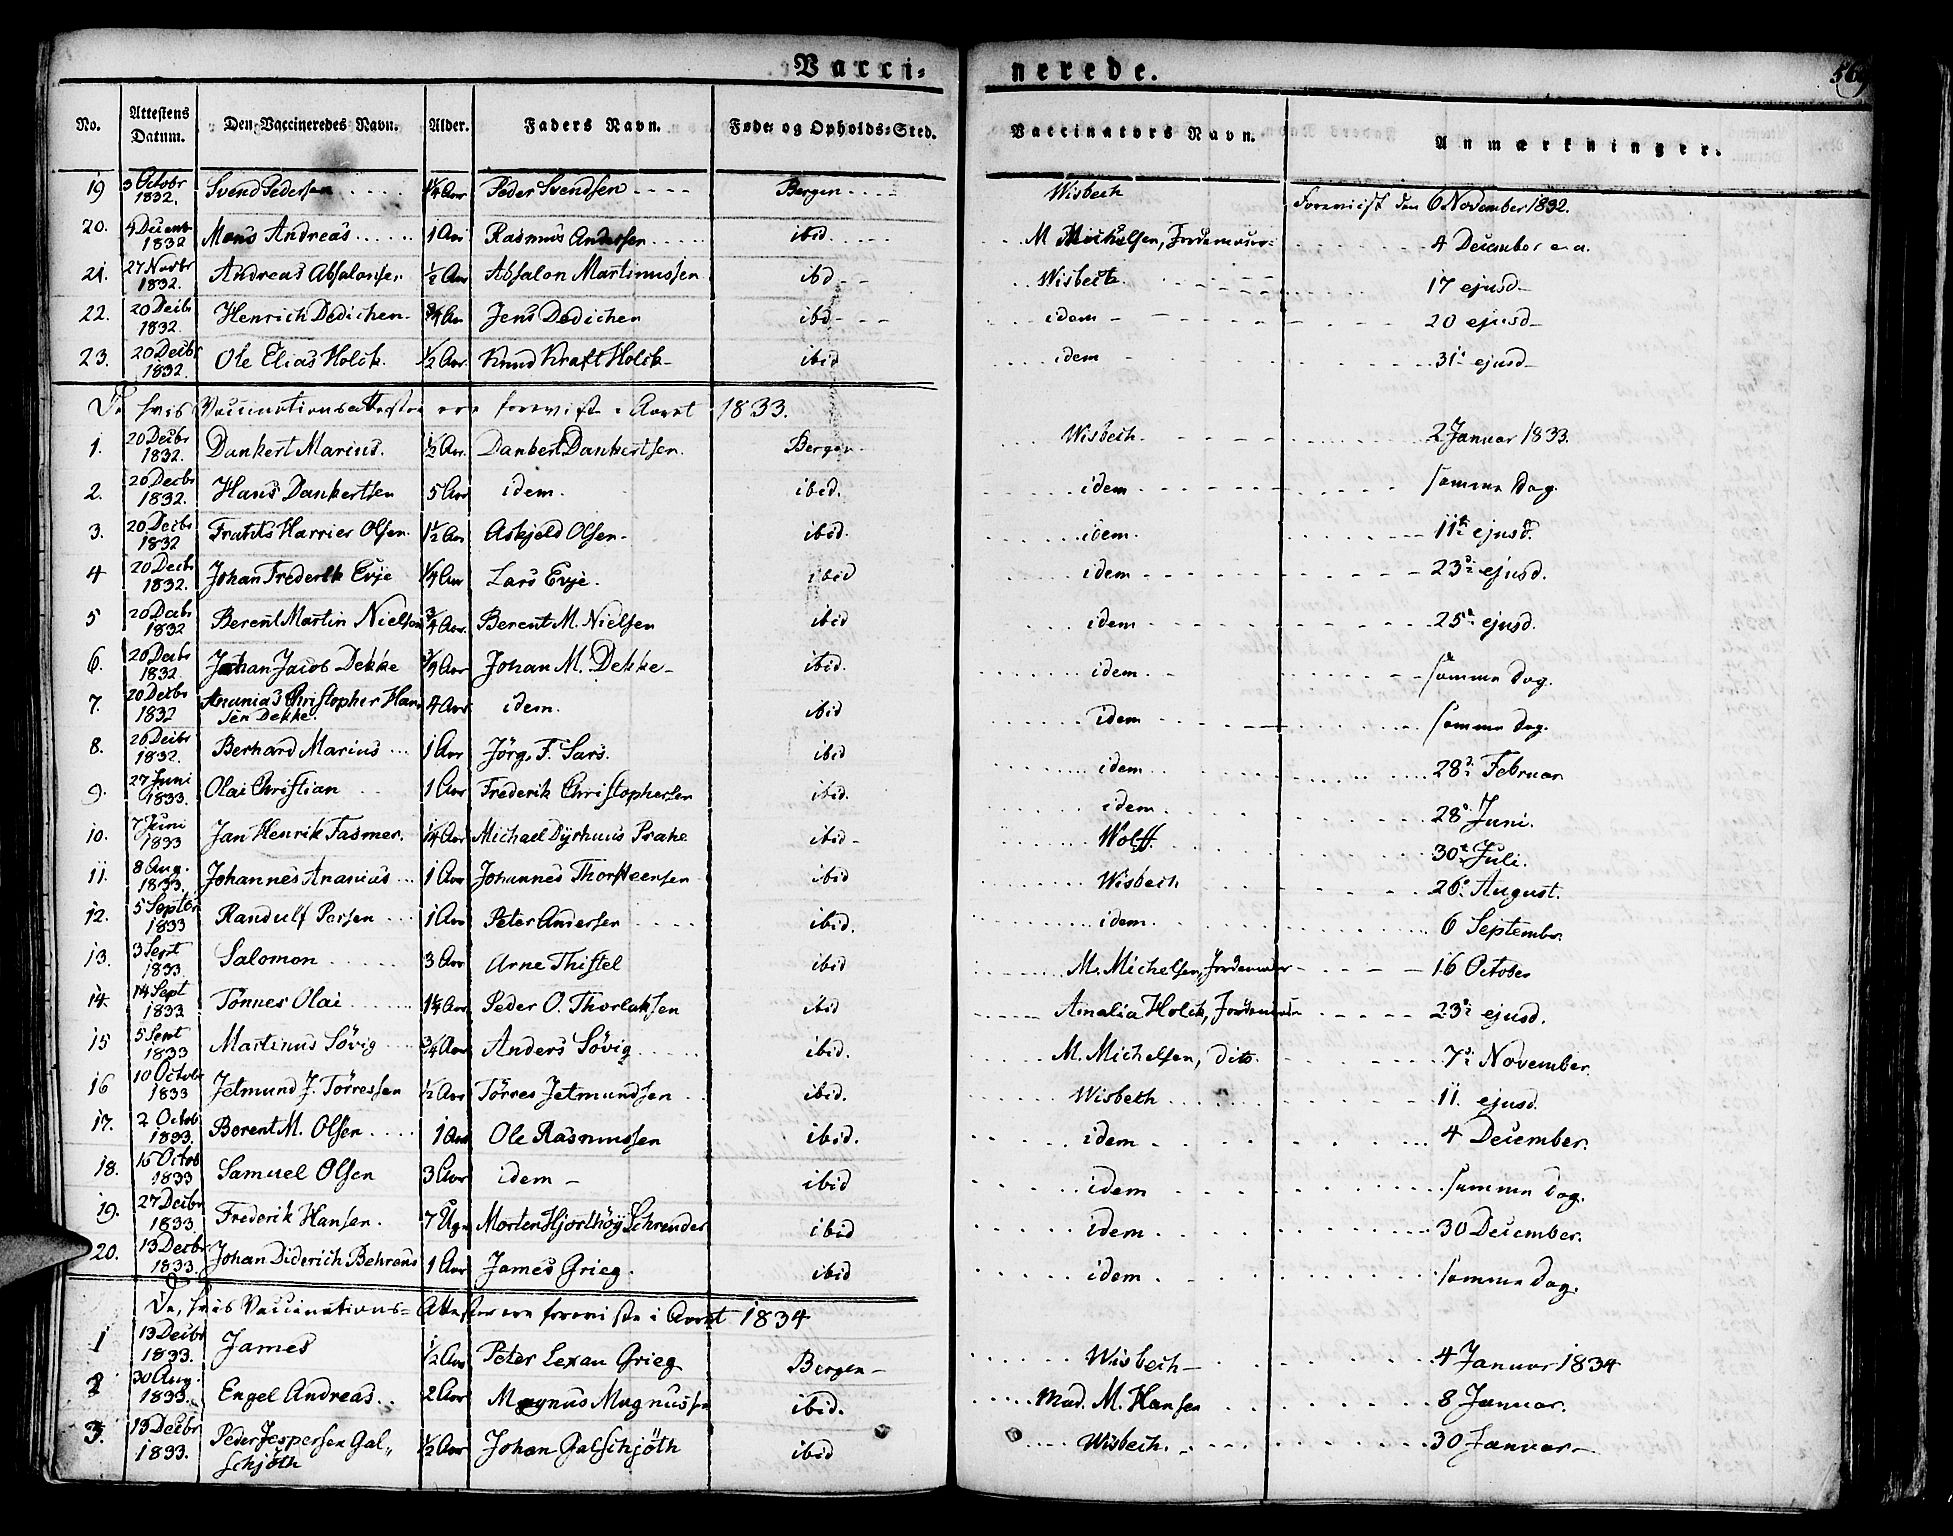 Vacci-
nerede.
569
No. Attestens Datum. Den Vaccineredes Navn. Alder. Faders Navn. Føde- og Opholds-Sted. Vaccinators Navn. Anmærkninger.
19 3 Octobr 1832. Svend Pedersen 1¼ Aar Peder Svendsen Bergen Wisbech Foreviist den 6 November 1832.
20. 4 Decemb 1832 Mons Andreas 1 Aar Rasmus Andersen ibid. M Michelsen, Jordemoder 4 December e. a.
21. 27 Novbr 1832. Andreas Absalonsen ½ Aar Absalon Martinussen ibd Wisbech 17 ejusd
22. 20 Decbr 1832. Henrich Dedichen ¾ Aar Jens Dedichen ibd idem 20 ejusd
23. 20 Decbr 1832. Ole Elias Holck ½ Aar Knud Kraft Holck ibid idem 31 ejusd
De, hvis Vaccinationsattester ere foreviste i Aaret 1833.
1. 20 Decbr 1832. Dankert Marius. ½ Aar Dankert Dankertsen. Bergen Wisbech 2 Januar 1833.
2. 20 Decbr 1832. Hans Dankertsen 5 Aar idem. ibid. idem samme Dag.
3. 20 Decbr 1832 Harries Olsen 1½ Aar Askjeld Olsen ibid. idem. 11 ejusd.
4 20 Decb 1832. Johan Frederik Evje ¼ Aar Lars Evje. ibid idem 23 ejusd.
5 20 Decbr 1832 Berent Martin Nielsen ¾ Aar Berent M. Nielsen ibid idem 25 ejusd.
6. 20 Decbr 1832. Johan Jacob Dekke ¾ Aar Johan M. Dekke ibid. idem samme Dag.
7. 20 Decbr 1832 Ananias Christopher Han-
sen Dekke. 4 Aar idem. ibid idem samme Dag.
8. 20 Decbr 1832. Berhard Marius 1 Aar Jörg. F. Sars. ibid idem 28 Februar
9. 27 Juni 1833. Olai Christian 1 Aar Frederik Christophersen ibid. idem 28 Juni.
10. 7 Juni 1833 Jan Henrik Fasmer. ¼ Aar Michael Dyrhuus Prahe ibid Wolff. 30 Juli.
11. 8 Aug. 1833. Johannes Ananias 1 Aar Johannes Thorsteensen ibid Wisbech 26 August.
12. 5 Septbr 1833 Randulf Persen 1 Aar Peter Andersen ibid. idem 6 September
13. 3 Sept 1833. Salomon 3 Aar Arne Thistel ibid M. Michelsen, Jordemoder 16 October
14. 14 Sept 1833 Tönnes Olai 1¼ Aar Peder O. Thorlaksen ibid Amalia Holck, Jordemoder 23 ejusd.
15 5 Sept 1833 Martinus Sövig ¾ Aar Anders Sövig ibid. M. Michelsen, dito. 7 November.
16 10 Octobr 1833 Jetmund J. Törressen ½ Aar Törres Jetmundsen ibid. Wisbech 11. ejusd.
17. 2 Octob 1833. Berent M. Olsen 1 Aar Ole Rasmussen ibid. idem 4 December.
18. 15 Octob 1833 Samuel Olsen 3 Aar idem ibid idem samme Dag.
19. 27 Decbr 1833. Frederik Hansen. 7 Ugr Morten Hjorthöy Schreuder ibid idem 30 December.
20. 13 Decbr 1833. Johan Diderich Behrens 1 Aar James Grieg. ibid idem samme Dag.
De, hvis Vaccinations-Attester ere foreviste i Aaret 1834
1 13 Decbr 1833. James ½ Aar Peter Lexau Grieg Bergen Wisbech 4 Januar 1834
2 30 Aug. 1833. Engel Andreas 2 Aar Magnus Magnussen ibid. Mad. M. Hansen 8 Januar.
3. 13 Decbr 1833. Peder Jespersen Gal-
schjöth ½ Aar Johan Galschjöth ibid Wisbech. 30 Januar